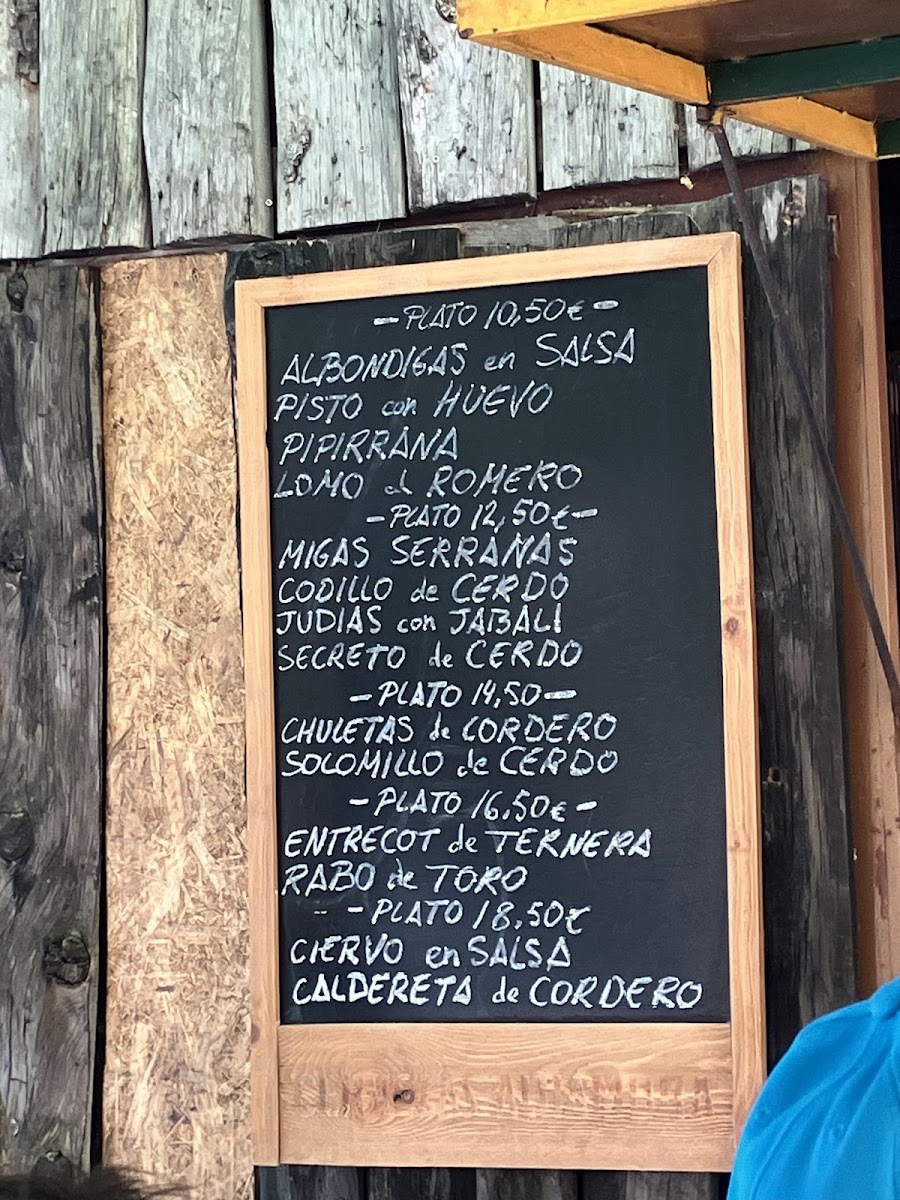 - PLATO 10,50€ -
ALBONDIGAS en SALSA
PISTO con HUEVO
PIPIRRANA
LOMO al ROMERO
- PLATO 12,50€ -
MIGAS SERRANAS
CODILLO de CERDO
JUDIAS con JABALI
SECRETO de CERDO
- PLATO 14,50 -
CHULETAS de CORDERO
SOLOMILLO de CERDO
- PLATO 16,50€ -
ENTRECOT de TERNERA
RABO de TORO
- - PLATO 18,50€
CIERVO en SALSA
CALDERETA de CORDERO